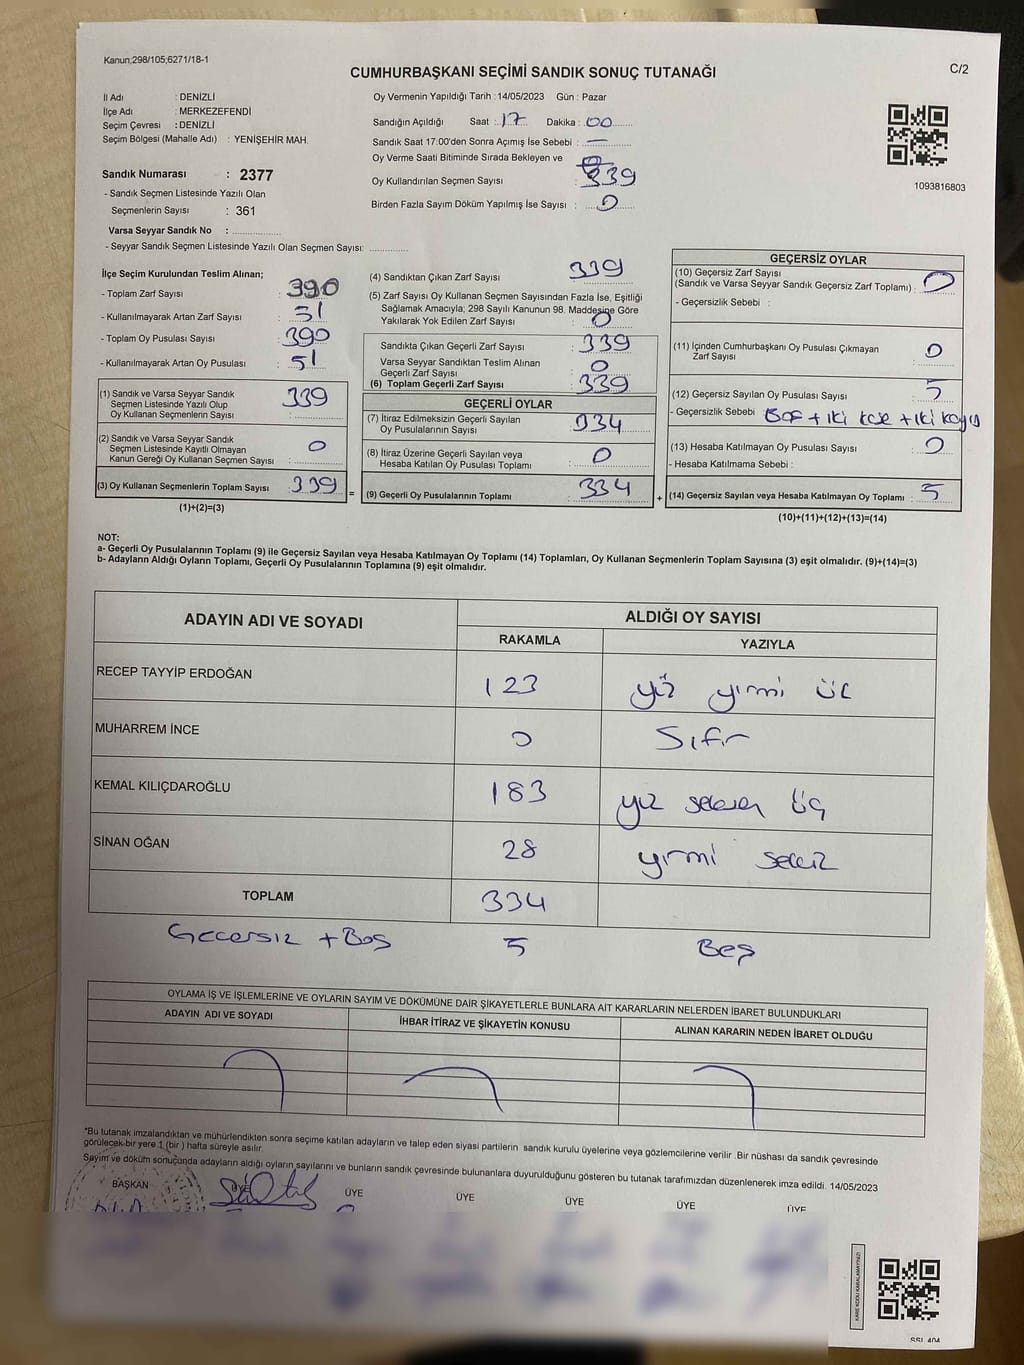 Kanun;298/105;6271/18-1
C/2
CUMHURBAŞKANI SEÇİMİ SANDIK SONUÇ TUTANAĞI
İl Adı : DENİZLİ
İlçe Adı : MERKEZEFENDİ
Seçim Çevresi : DENİZLİ
Seçim Bölgesi (Mahalle Adı) : YENİŞEHİR MAH.
Sandık Numarası : 2377
- Sandık Seçmen Listesinde Yazılı Olan
Seçmenlerin Sayısı : 361
Varsa Seyyar Sandık No :
- Seyyar Sandık Seçmen Listesinde Yazılı Olan Seçmen Sayısı:
Oy Vermenin Yapıldığı Tarih : 14/05/2023 Gün : Pazar
Sandığın Açıldığı Saat : 17 Dakika : 00
Sandık Saat 17:00'den Sonra Açımış İse Sebebi : —
Oy Verme Saati Bitiminde Sırada Bekleyen ve
Oy Kullandırılan Seçmen Sayısı : 339
Birden Fazla Sayım Döküm Yapılmış İse Sayısı : 0
1093816803
İlçe Seçim Kurulundan Teslim Alınan;
- Toplam Zarf Sayısı : 390
- Kullanılmayarak Artan Zarf Sayısı : 51
- Toplam Oy Pusulası Sayısı : 390
- Kullanılmayarak Artan Oy Pusulası : 51
(1) Sandık ve Varsa Seyyar Sandık
Seçmen Listesinde Yazılı Olup
Oy Kullanan Seçmenlerin Sayısı : 339
(2) Sandık ve Varsa Seyyar Sandık
Seçmen Listesinde Kayıtlı Olmayan
Kanun Gereği Oy Kullanan Seçmen Sayısı : 0
(3) Oy Kullanan Seçmenlerin Toplam Sayısı : 339
(1)+(2)=(3)
=
(4) Sandıktan Çıkan Zarf Sayısı : 339
(5) Zarf Sayısı Oy Kullanan Seçmen Sayısından Fazla İse, Eşitliği
Sağlamak Amacıyla; 298 Sayılı Kanunun 98. Maddesine Göre
Yakılarak Yok Edilen Zarf Sayısı : 0
Sandıkta Çıkan Geçerli Zarf Sayısı : 339
Varsa Seyyar Sandıktan Teslim Alınan
Geçerli Zarf Sayısı : 0
(6) Toplam Geçerli Zarf Sayısı : 339
GEÇERLİ OYLAR
(7) İtiraz Edilmeksizin Geçerli Sayılan
Oy Pusulalarının Sayısı : 334
(8) İtiraz Üzerine Geçerli Sayılan veya
Hesaba Katılan Oy Pusulası Toplamı : 0
(9) Geçerli Oy Pusulalarının Toplamı : 334
+
GEÇERSİZ OYLAR
(10) Geçersiz Zarf Sayısı
(Sandık ve Varsa Seyyar Sandık Geçersiz Zarf Toplamı) : 0
- Geçersizlik Sebebi :
(11) İçinden Cumhurbaşkanı Oy Pusulası Çıkmayan
Zarf Sayısı : 0
(12) Geçersiz Sayılan Oy Pusulası Sayısı : 5
- Geçersizlik Sebebi : Boş + iki kere + iki
(13) Hesaba Katılmayan Oy Pusulası Sayısı : 0
- Hesaba Katılmama Sebebi :
(14) Geçersiz Sayılan veya Hesaba Katılmayan Oy Toplamı : 5
(10)+(11)+(12)+(13)=(14)
NOT:
a- Geçerli Oy Pusulalarının Toplamı (9) ile Geçersiz Sayılan veya Hesaba Katılmayan Oy Toplamı (14) Toplamları, Oy Kullanan Seçmenlerin Toplam Sayısına (3) eşit olmalıdır. (9)+(14)=(3)
b- Adayların Aldığı Oyların Toplamı, Geçerli Oy Pusulalarının Toplamına (9) eşit olmalıdır.
ADAYIN ADI VE SOYADI
ALDIĞI OY SAYISI
RAKAMLA YAZIYLA
RECEP TAYYİP ERDOĞAN 123 yüz yirmi üç
MUHARREM İNCE 0 Sıfır
KEMAL KILIÇDAROĞLU 183 yüz seksen üç
SİNAN OĞAN 28 yirmi sekiz
TOPLAM 334
Geçersiz + Boş 5 Beş
OYLAMA İŞ VE İŞLEMLERİNE VE OYLARIN SAYIM VE DÖKÜMÜNE DAİR ŞİKAYETLERLE BUNLARA AİT KARARLARIN NELERDEN İBARET BULUNDUKLARI
ADAYIN ADI VE SOYADI İHBAR İTİRAZ VE ŞİKAYETİN KONUSU ALINAN KARARIN NEDEN İBARET OLDUĞU
*Bu tutanak imzalandıktan ve mühürlendikten sonra seçime katılan adayların ve talep eden siyasi partilerin sandık kurulu üyelerine veya gözlemcilerine verilir .Bir nüshası da sandık çevresinde
görülecek bir yere 1 (bir ) hafta süreyle asılır.
Sayım ve döküm sonuçunda adayların aldığı oyların sayılarını ve bunların sandık çevresinde bulunanlara duyurulduğunu gösteren bu tutanak tarafımızdan düzenlenerek imza edildi. 14/05/2023
BAŞKAN ÜYE ÜYE ÜYE ÜYE ÜYE ÜYE
KARE KODU KARALAMAYINIZ!